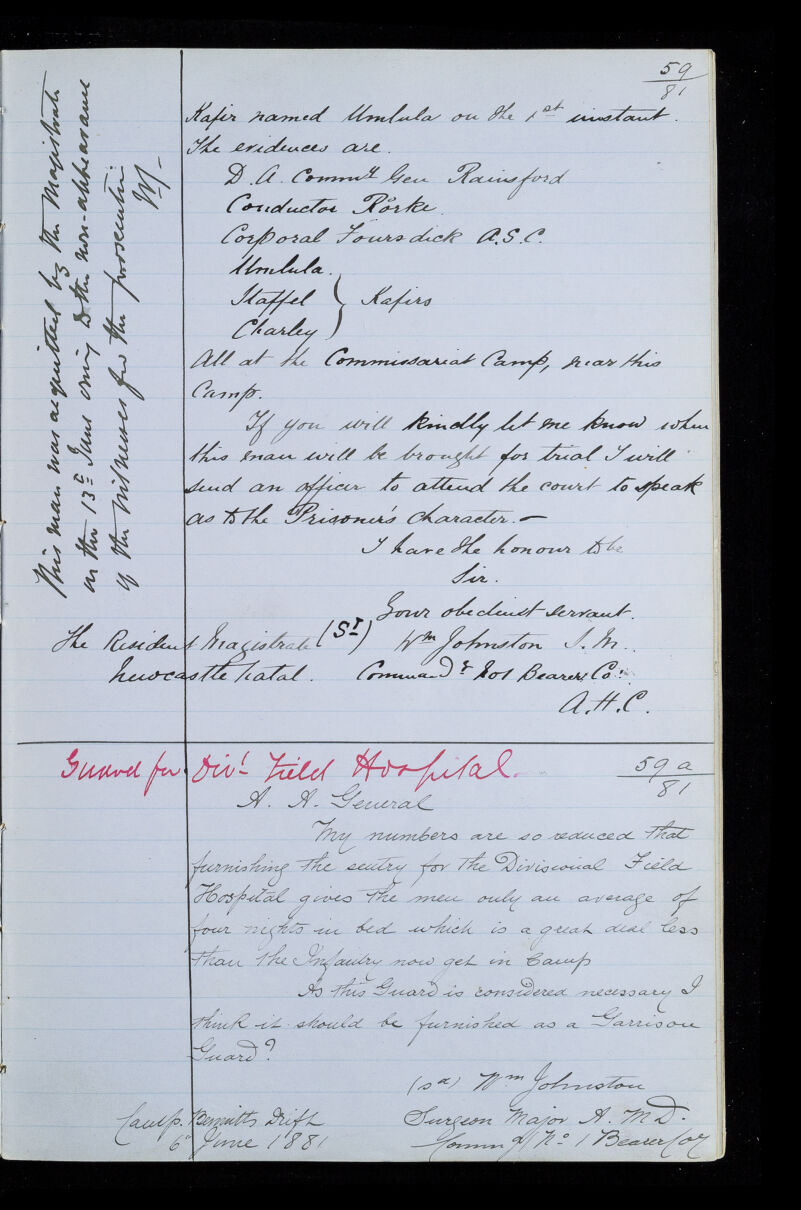 59
81
Kafir named Umlula on the 1st instant.
The evidences are.
D. A. Commy Gen Rainsford
Conductor Rorke.
Corporal Foursdick A.S.C.
Umlula.
Staffel } Kafirs
Charley
All at the Commissariat Camp, near this
Camp.
If you will kindly let me know when
this man will be brought for trial I will
send an officer to attend the court to speak
as to the Prisoner's character. —
I have the honour to be
Sir.
Your obedient servant.
The Resident Magistrate (Sd) Wm Johnston S. M.
Newcastle Natal. Commandg No 1 Bearer Co.
A.H.C.
This man was acquitted by the Magistrate
on the 13th June owing to the non-appearance
of the witnesses for the prosecution
WJ-
Guard for Divl Field Hospital.
59 a
81
A. A. General
My numbers are so reduced that
furnishing the sentry for the Divisional Field
Hospital gives the men only an average of
four nights in bed which is a great deal less
than the Infantry now get in Camp
As this Guard is considered necessary I
think it should be furnished as a Garrison
Guard?
(sd) Wm Johnston
Camp. Bennetts Drift Surgeon Major A. M D.
6th June 1881 Commdg No 1 Bearer Coy